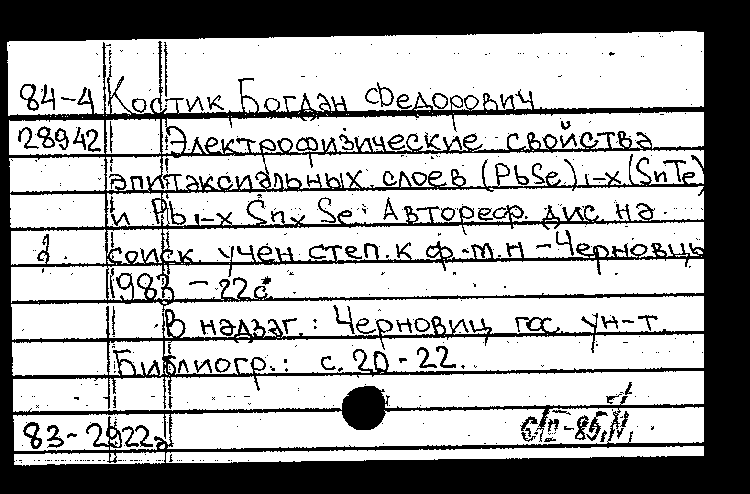 84-4 Костик, Богдан Федорович
28942 Электрофизические свойства
эпитаксиальных слоев (PbSe)1-x(SnTe)
и Pb1-x Snx Se: Автореф. дис. на
соиск. учен. степ. к. ф.-м. н. - Черновцы
1983 - 22с.
В надзаг.: Черновиц. гос. ун-т.
Библиогр.: с. 20-22.
83-2922а